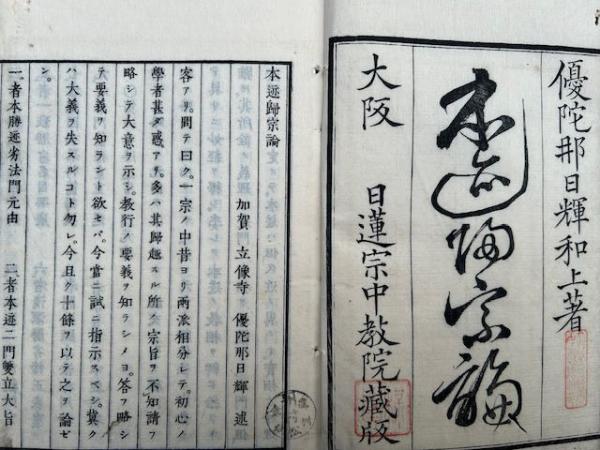 優陀那日輝和上著
本迹歸宗論
大阪 日蓮宗中教院藏版
本迹歸宗論
加賀 立像寺 優陀那日輝 述
客アリ問テ曰ク。一宗ノ中昔ヨリ兩派相分レテ。初心ノ
學者甚タ惑アリ。多ハ其歸趣スル所ノ宗旨ヲ不知請フ
略シテ大意ヲ示シ。教行ノ要義ヲ知ラシメヨ。答フ略シ
テ要義ヲ知ラント欲セバ。今當ニ試ニ指示スベシ。冀ク
ハ大義ヲ失スルコト勿レ。今且ク十條ヲ以テ之ヲ論ゼ
ン。
一者本勝迹劣法門元由 二者本迹二門雙立大旨